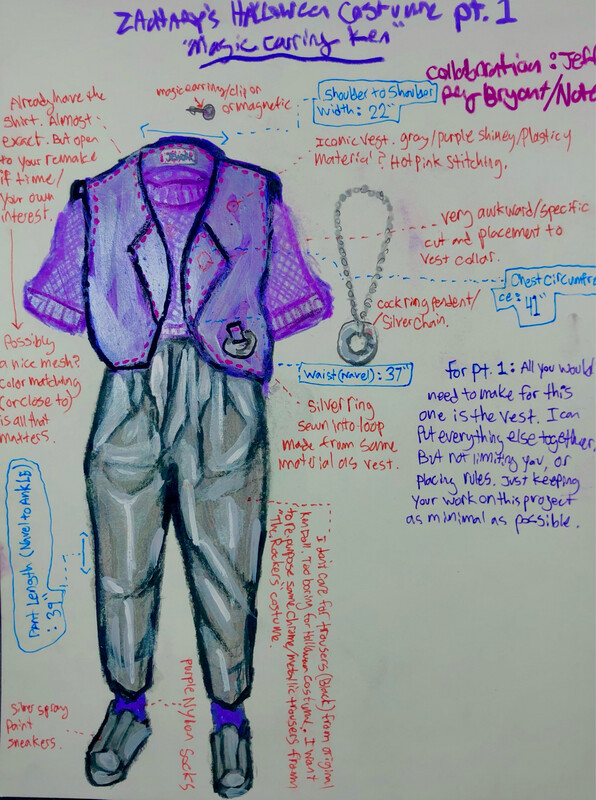 ZACHTARY's HALLOWEEN Costume pt. 1
"Magic Earring Ken"
collabration: Jeff
rey Bryant/Note
magic earring/clip on
or magnetic
Shoulder to Shoulder
width: 22"
Already have the
shirt. Almost
exact. But open
to your remake
if time/
your own
interest.
Iconic vest. gray/purple shiney/Plasticy
material? Hot Pink Stitching.
very awkward/specific
cut and placement to
vest collar.
Chest Circumfren
ce: 41"
cock ring pendent/
Silver chain.
waist (navel): 37"
Possibly
a nice mesh?
color matching
(or close to)
is all that
matters.
Silver ring
sewn into loop
made from same
material as vest.
For pt. 1: All you would
need to make for this
one is the vest. I can
Put everything else together,
But not limiting you, or
placing rules. Just keeping
your work on this project
as minimal as possible.
Pant Length (Navel to Ankle)
: 39"
I don't care for trousers (Black) from original
Ken Doll. Too boring for Halloween Costume. I want
to re purpose same chrome/metallic trousers from
"The Rockers" costume.
purple Nylon Socks
Silver spray
paint
sneakers.